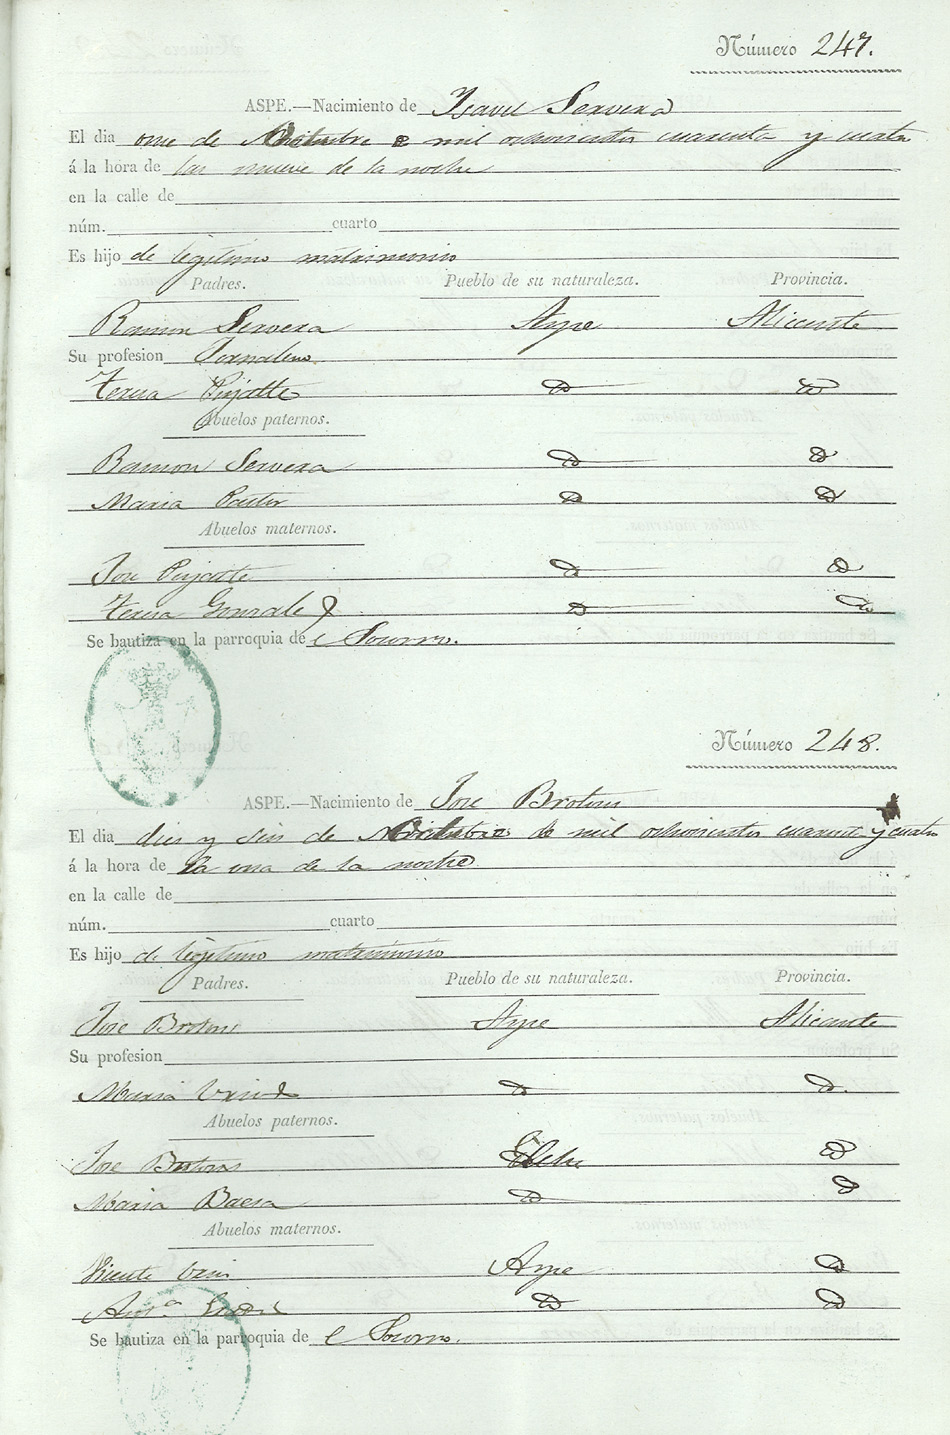 Número 247.
ASPE.—Nacimiento de Ysavel Servera
El dia once de Noviembre de mil ochocientos cuarenta y cuatro
á la hora de las nueve de la noche
en la calle de
núm. cuarto
Es hijo de legitimo matrimonio
Padres. Pueblo de su naturaleza. Provincia.
Ramon Servera Aspe Alicante
Su profesion Jornalero
Teresa Pujalte D D
Abuelos paternos.
Ramon Servera D D
Maria Pastor D D
Abuelos maternos.
Jose Pujalte D D
Teresa Gonzalez D D
Se bautiza en la parroquia de el Socorro.
Número 248.
ASPE.—Nacimiento de Jose Brotons
El dia dies y seis de de mil ochocientos cuarenta y cuatro
á la hora de La una de la noche
en la calle de
núm. cuarto
Es hijo de legitimo matrimonio
Padres. Pueblo de su naturaleza. Provincia.
Jose Brotons Aspe Alicante
Su profesion
Maria D D.
Abuelos paternos.
Jose Brotons Elche D
Maria Baesa D D
Abuelos maternos.
Vicente Aspe D
D D
Se bautiza en la parroquia de el Socorro.